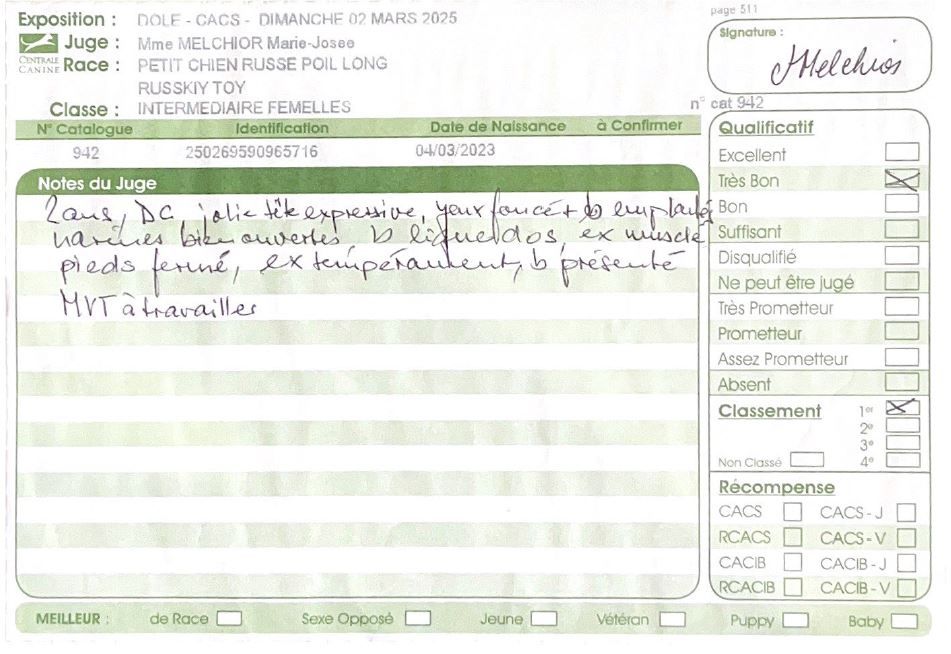 page 511
Exposition : DOLE - CACS - DIMANCHE 02 MARS 2025
Juge : Mme MELCHIOR Marie-Josee
CENTRALE CANINE
Race : PETIT CHIEN RUSSE POIL LONG
RUSSKIY TOY
Classe : INTERMEDIAIRE FEMELLES
Signature :
JMelchior
n° cat 942
N° Catalogue Identification Date de Naissance à Confirmer
942 250269590965716 04/03/2023
Notes du Juge
2ans, DC, jolie tête expressive, yeux foncé + b emplantés
narines bien ouvertes, b ligne dos, ex musclé
pieds fermé, ex tempérament, b présenté
MVT à travailler
Qualificatif
Excellent
Très Bon
Bon
Suffisant
Disqualifié
Ne peut être jugé
Très Prometteur
Prometteur
Assez Prometteur
Absent
Classement 1er
2e
3e
Non Classé 4e
Récompense
CACS CACS - J
RCACS CACS - V
CACIB CACIB - J
RCACIB CACIB - V
MEILLEUR : de Race Sexe Opposé Jeune Vétéran Puppy Baby